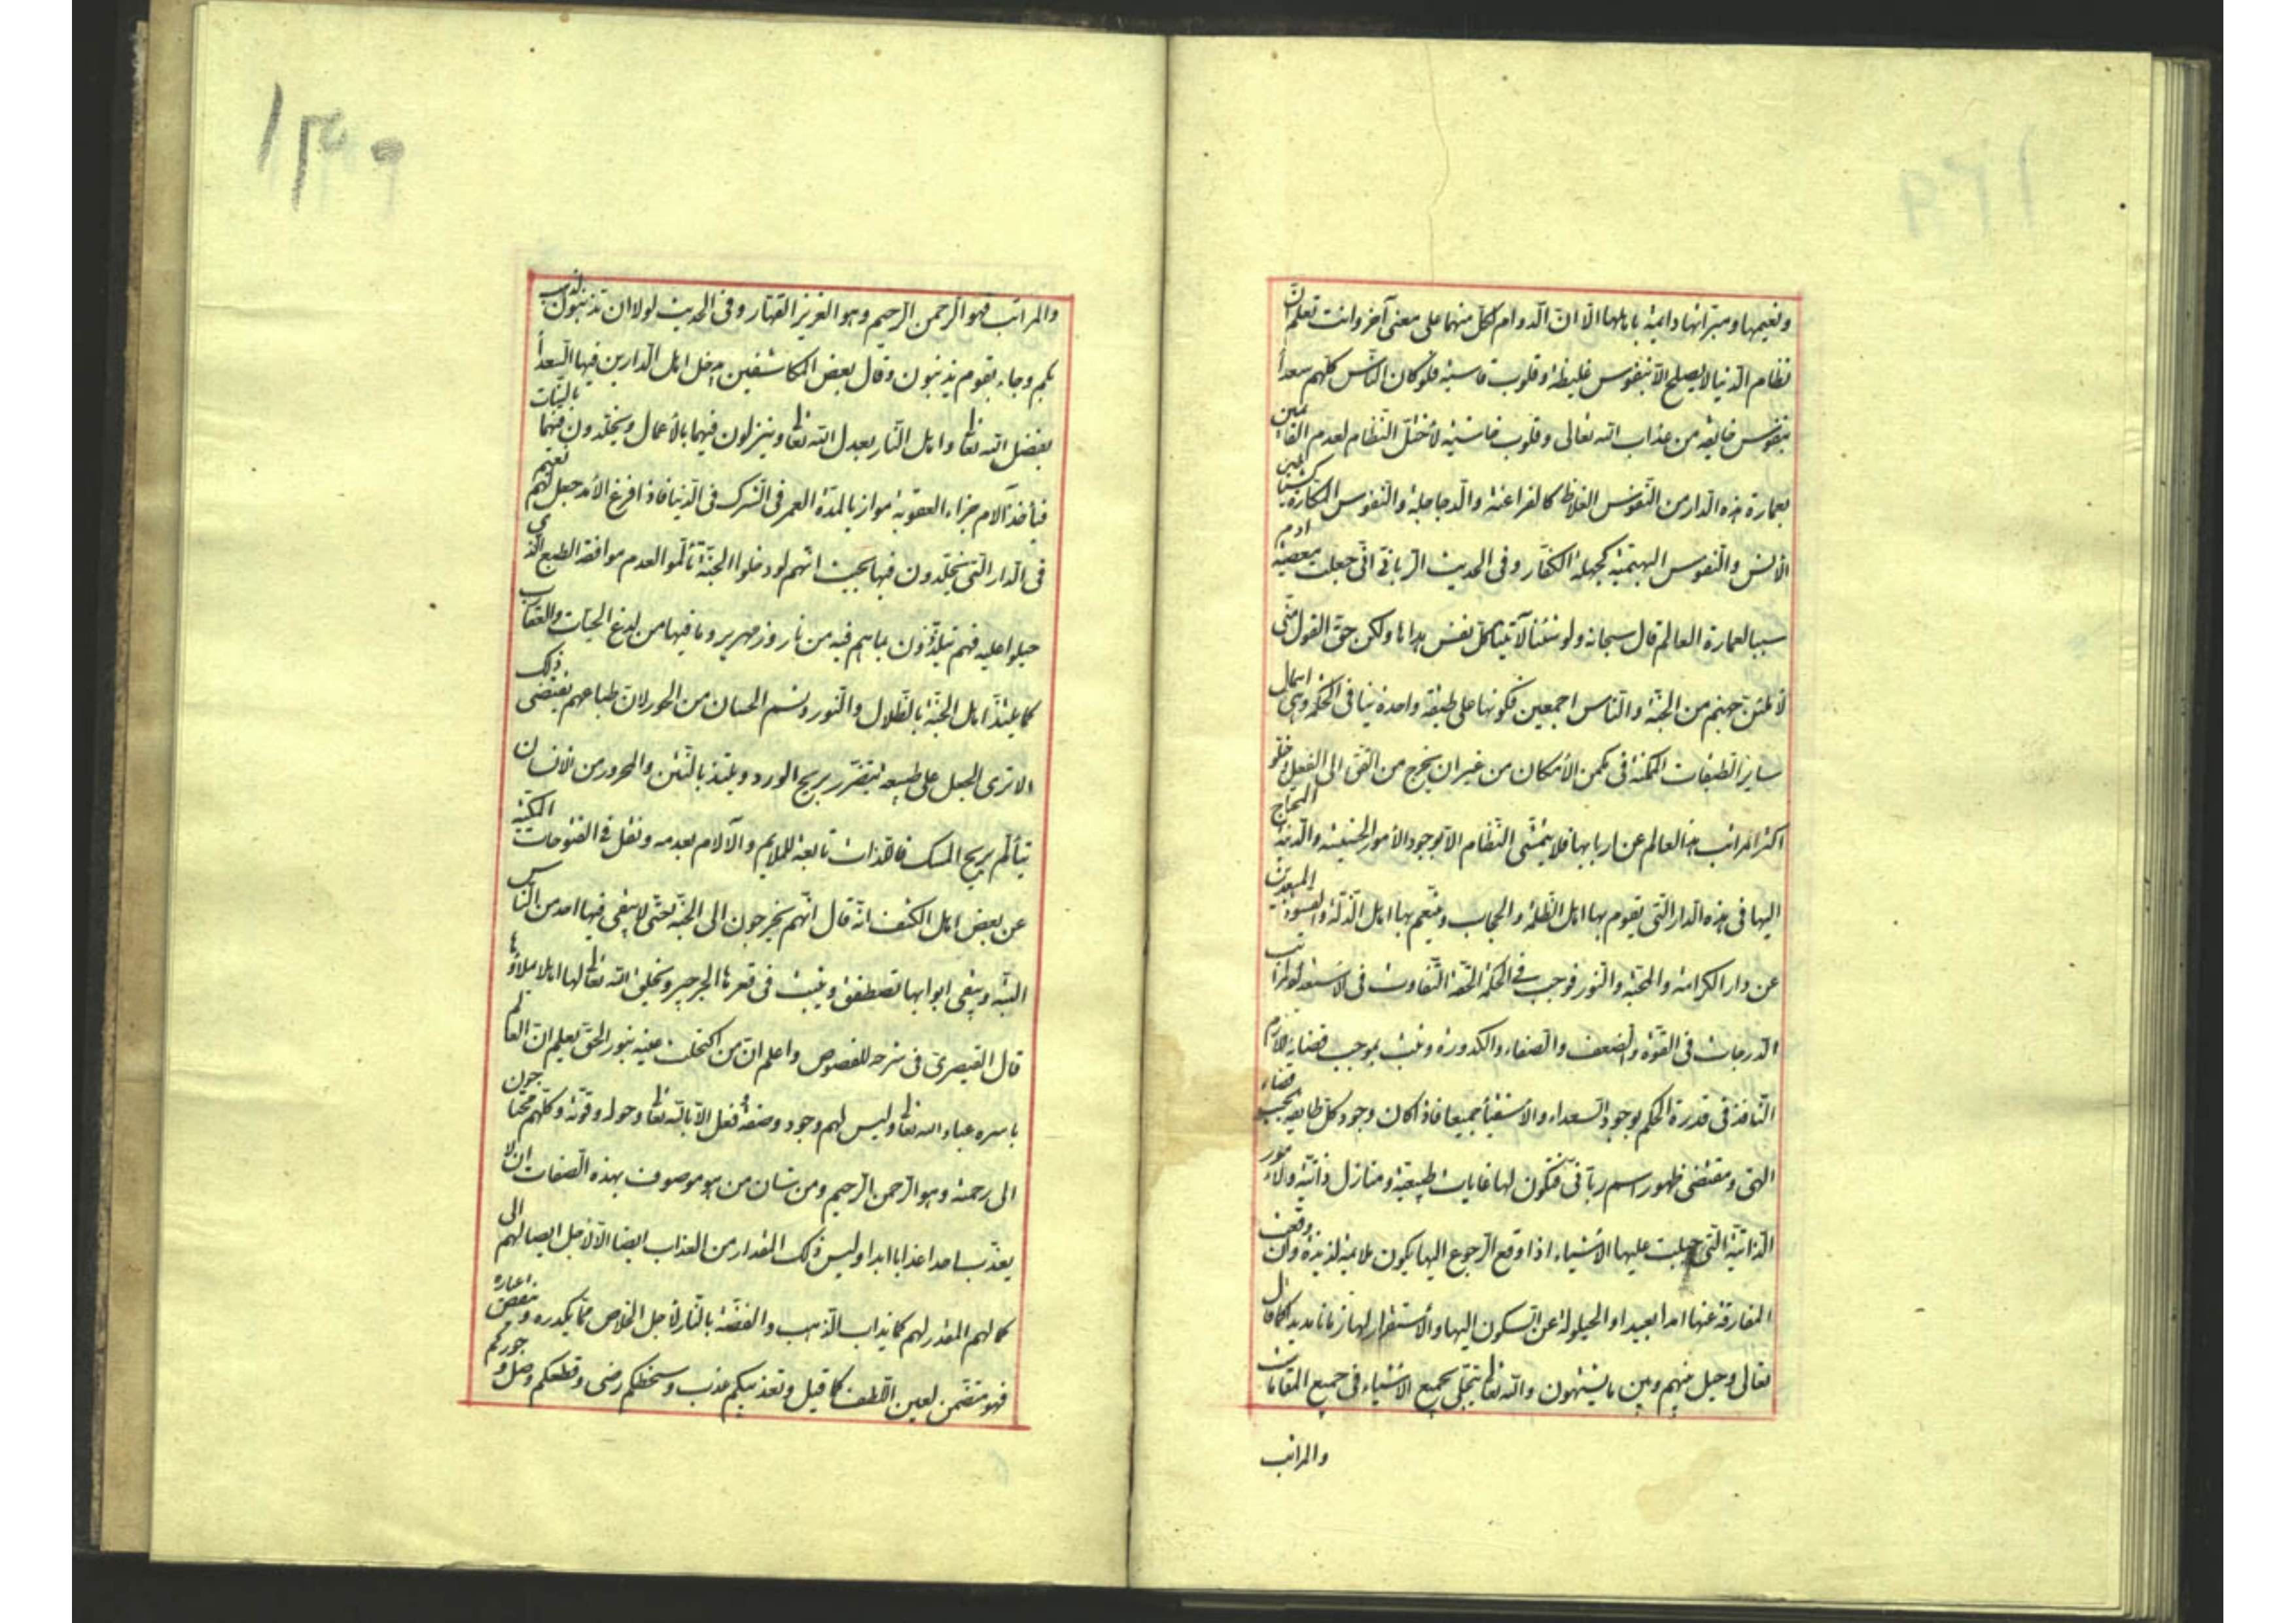 ونعيمها ومسراتها دائمة باهلها الا ان الدوام لكل منهما على معنى آخر وانت تعلم ان
نظام الدنيا لا يصلح الا بنفوس غليظة وقلوب قاسية فلو كان الناس كلهم سعدأ
بنفوس خائفة من عذاب الله تعالى وقلوب خاشية لأختل النظام لعدم القائمين
بعمارة هذه الدار من النفوس الغلاظ كالفراعنة والدجاجلة والنفوس المكارة كشياطين
الأنس والنفوس البهيمية كجهلة الكفار وفى الحديث الربانى انى جعلت معصية ادم
سببا لعمارة العالم قال سبحانه ولو شئنا لآتينا كل نفس هداها ولكن حق القول منى
لأملئن جهنم من الجنة والناس اجمعين فكونها على طبقة واحدة ينافى الحكمة وهى اهمال
ساير الطبقات الممكنة فى مكمن الأمكان من غير ان يخرج من القوة الى الفعل وخلو
اكثر المراتب هذ العالم عن اربابها فلا يتمشى النظام الا بوجود الأمور الخسيسة والدنية المحتاج
اليها فى هذه الدار التى يقوم بها اهل الظلمة والحجاب ويتنعم بها اهل الذلة والقسوة المبعدين
عن دار الكرامة والمحبة والنور فوجب فى الحكمة الحقة التفاوت فى الاستعداد لمراتب
الدرجات فى القوة والضعف والصفاء والكدورة وثبت بموجب قضايه اللازم
النافذ فى قدرة الحكم بوجود السعداء والأشقيأ جميعا فاذا كان وجود كل طايفة بحسب قضاء
الهى ومقتضى ظهور اسم ربانى فتكون لها غايات طبيعية ومنازل ذاتية والأمور
الذاتية التى جبلت عليها الأشياء اذا وقع الرجوع اليها يكون ملايمة لذيذة وان وقعت
المفارقة عنها امدا بعيدا والحيلولة عن السكون اليها والأستقرار لها زمانا مديدا كما قال
تعالى وحيل بينهم وبين ما يشتهون والله تعا يتجلى بجميع الأشياء فى جميع المقامات
والمراتب
والمراتب فهو الرحمن الرحيم وهو العزيز القهار وفى الحديث لولا ان تذنبون لذهب
بكم وجاء بقوم يذنبون وقال بعض المكاشفين يدخل اهل الدارين فيها السعدأ
بفضل الله تعا واهل النار بعدل الله تعا وينزلون فيهما بالأعمال ويخلدون فيهما بالنيات
فيأخذ الآلام جزاء العقوبة موازيا لمدة العمر فى الشرك فى الدنيا فاذا فرغ الأمد جعل لهم نعيم
فى الدار التى يخلدون فيها بحيث انهم لو دخلوا الجنة تألموا لعدم موافقة الطبع الذى
جبلوا عليه فهم يتلذذون بما هم فيه من نار وزمهرير وما فيها من لدغ الحيات والعقارب
كما يلتذ اهل الجنة بالظلال والنور ولثم الحسان من الحور لان طباعهم تقتضى ذلك
الا ترى الجعل على طبيعه يتضرر بريح الورد ويلتذ بالنتن والمحرور من الانسان
يتألم بريح المسك فاللذات تابعة للملايم والآلام بعدمه ونقل فى الفتوحات المكية
عن بعض اهل الكشف انه قال انهم يخرجون الى الجنة حتى لا يبقى فيها احد من الناس
البتة ويبقى ابوابها تصطفق وينبت فى قعرها الجرجير ويخلق الله تعا لها اهلا يملاؤها
قال القيصرى فى شرحه للفصوص واعلم ان من اكتحلت عينه بنور الحق يعلم ان العالم
باسره عباد الله تعا وليس لهم وجود وصفة وفعل الا بالله تعا وحوله وقوته وكلهم محتاجون
الى رحمته وهو الرحمن الرحيم ومن شان من هو موصوف بهذه الصفات ان لا
يعذب احدا عذابا ابدا وليس ذلك المقدار من العذاب ايضا الا لأجل ايصالهم الى
كمالهم المقدر لهم كما يذاب الذهب والفضة بالنار لأجل الخلاص مما يكدره وينقص عياره
فهو متضمن لعين اللطف كما قيل وتعذيبكم عذب وسخطكم رضى وقطعكم وصل وجوركم